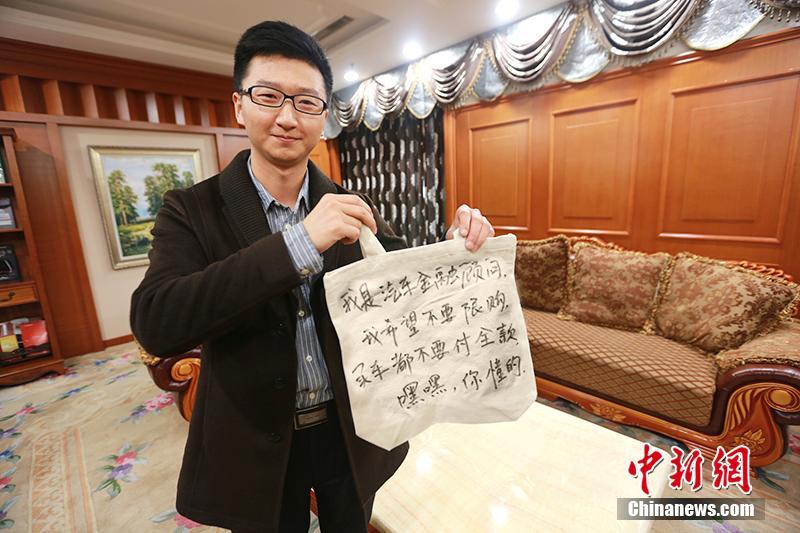 我是汽车金融顾问.
我希望不要限购.
买车都不要付全款
嘿嘿,你懂的.
中新网
Chinanews.com